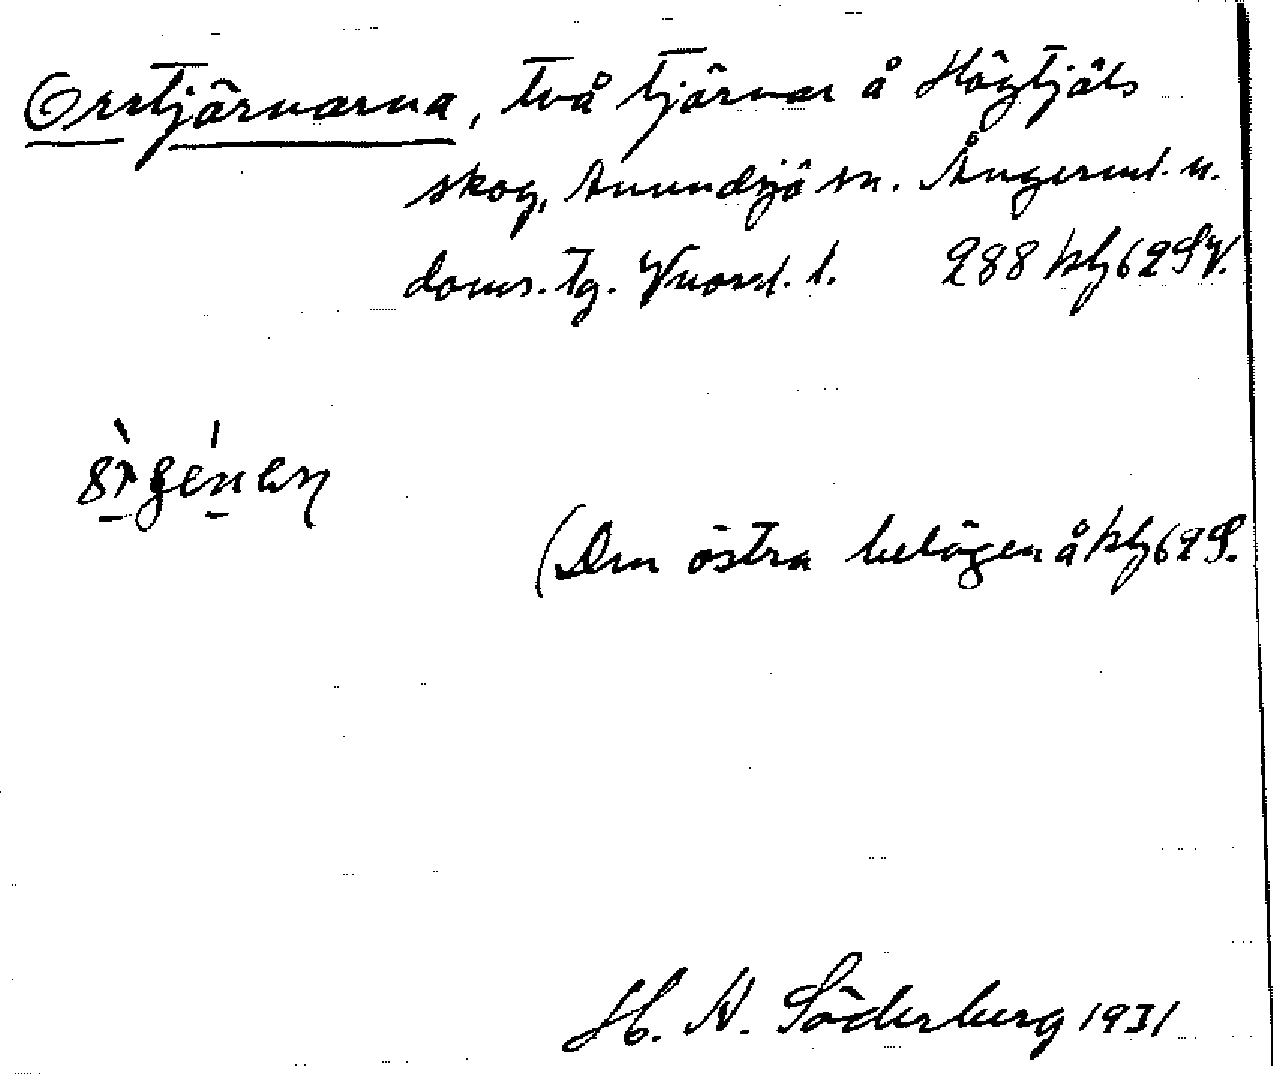 Orrtjärnarna, två tjärnar å Högtjäls
skog, Anundsjö sn. Ångerml. n.
doms. tg. Vnord. l. 288 hlg 62 SV.
(Den östra belägen å hlg 62 S.
H. A. Söderberg 1931